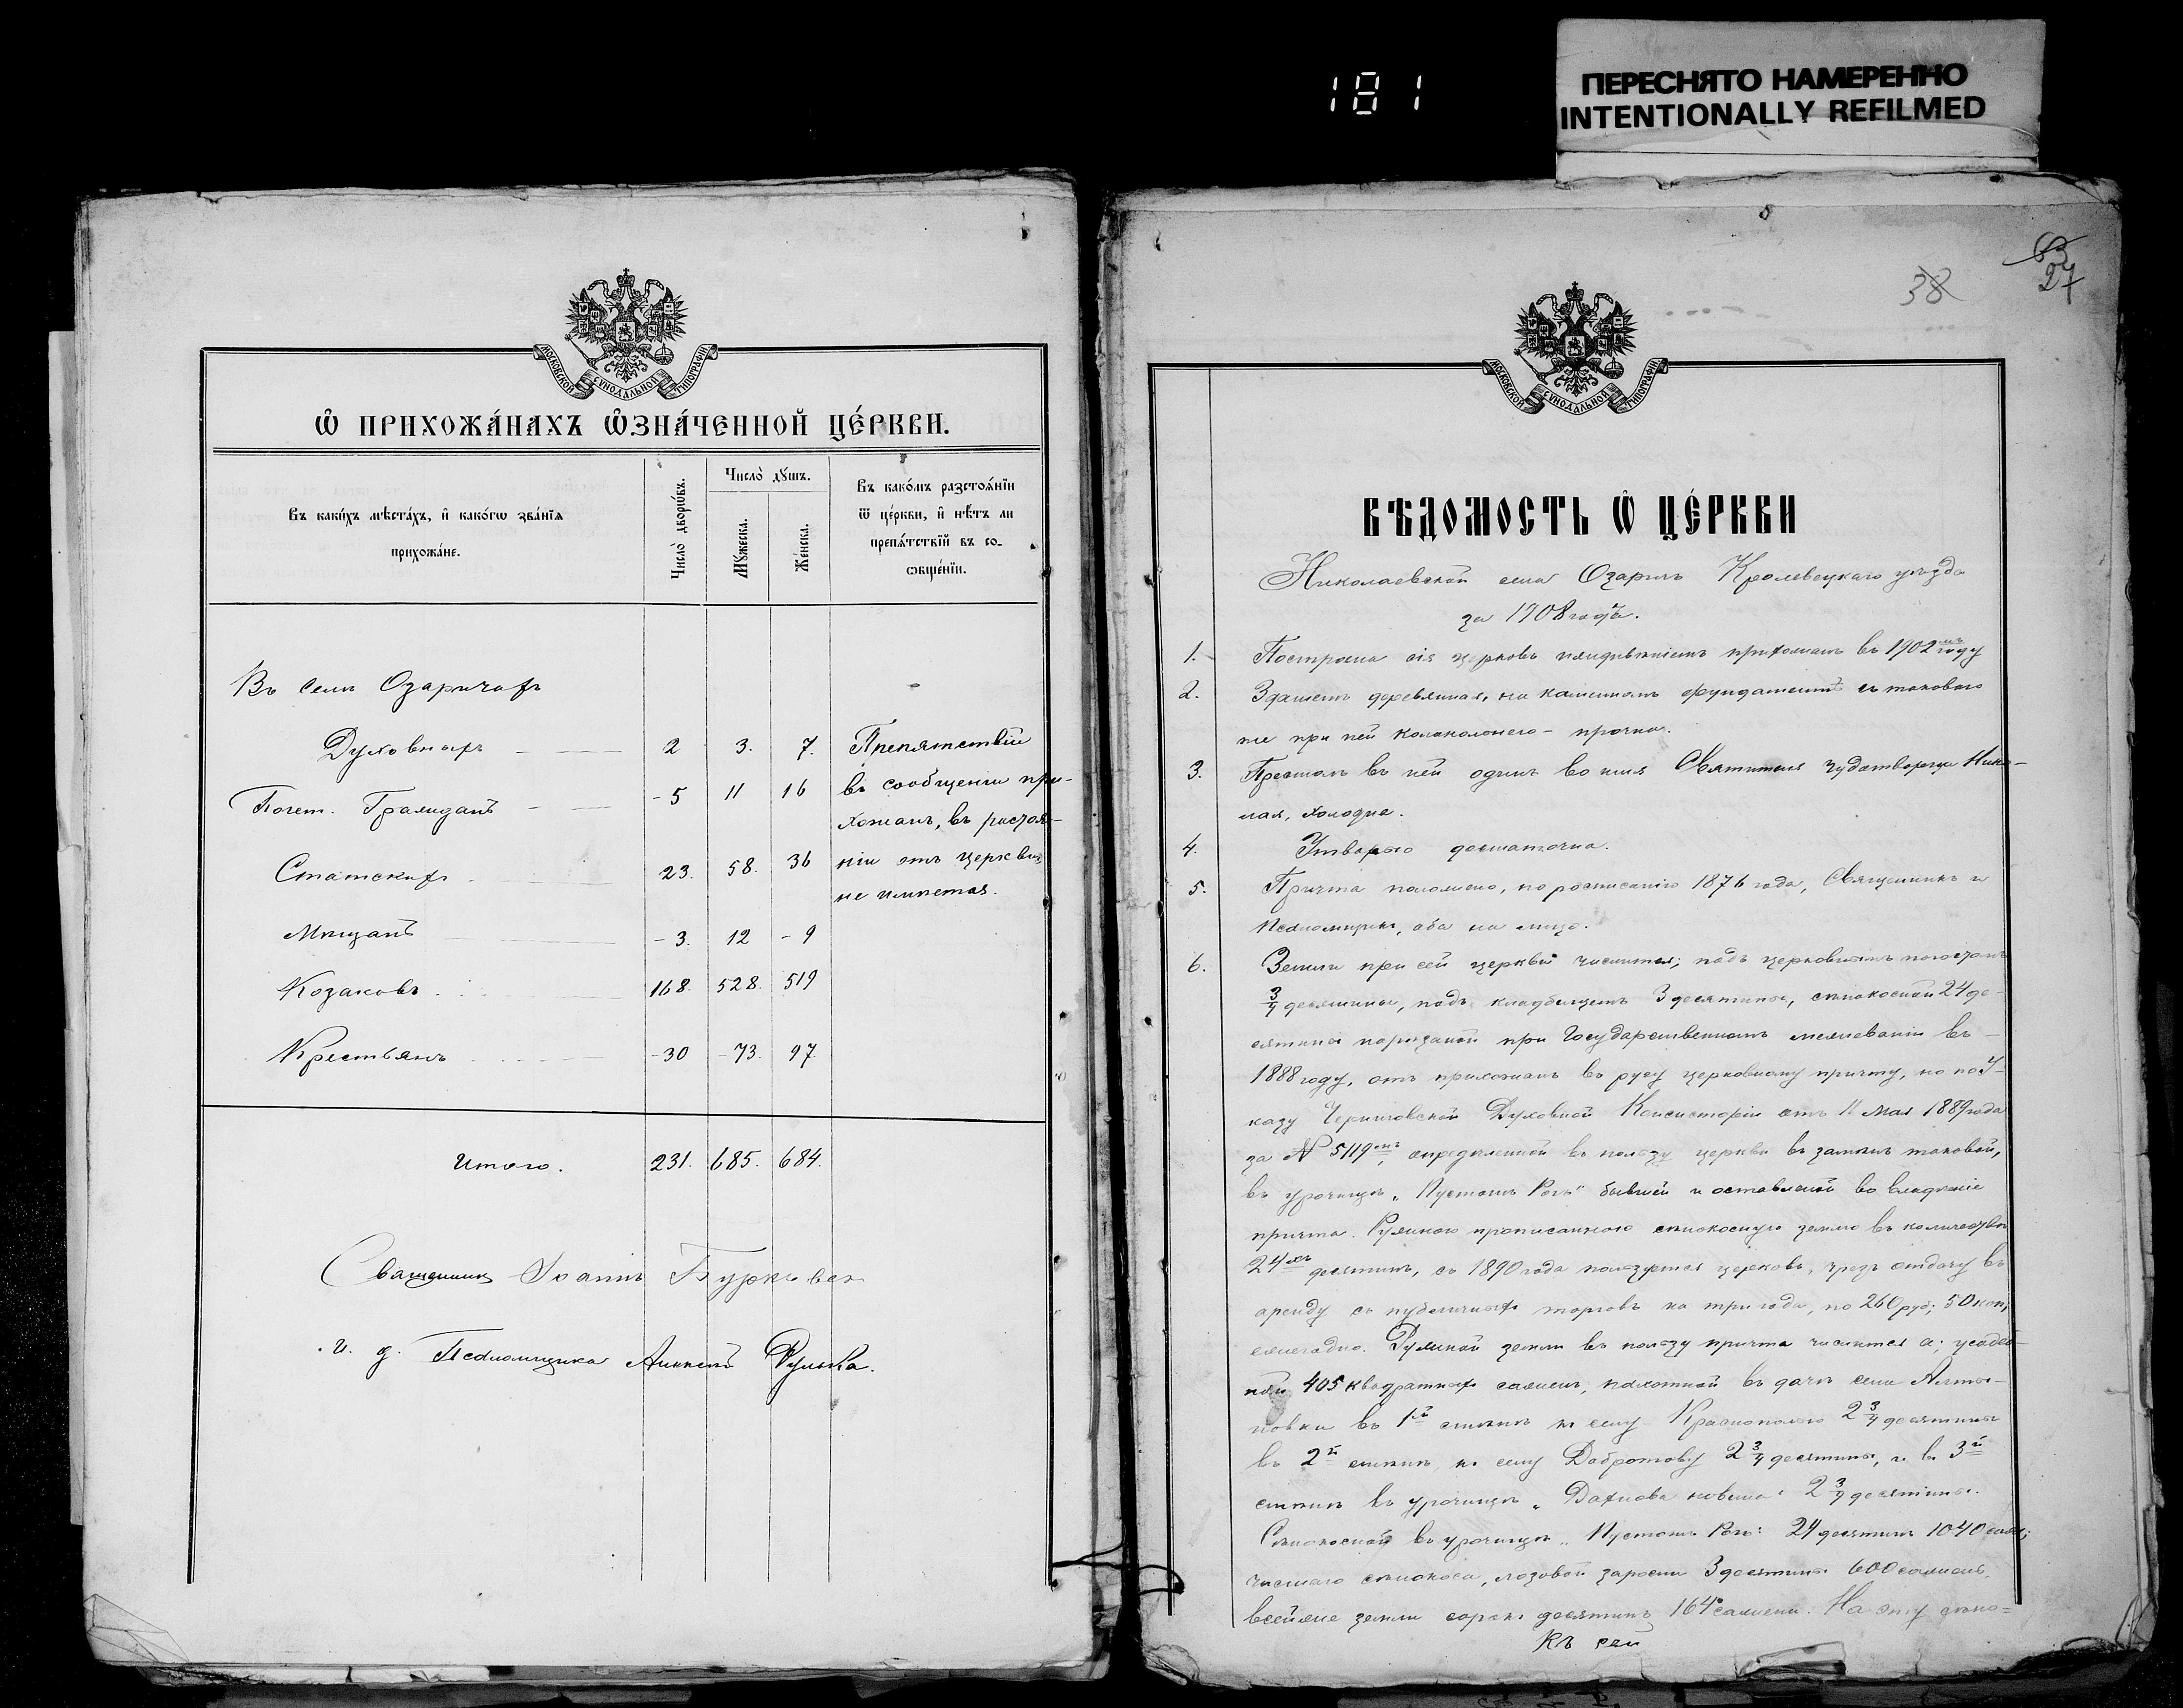 181
ПЕРЕСНЯТО НАМЕРЕННО
INTENTIONALLY REFILMED
МОСКОВСКОЙ СѴНОДАЛЬНОЙ ТИПОГРАФІИ
Ѽ ПРИХОЖА́НАХЪ Ѡ҆ЗНА́ЧЕННОЙ ЦЕ́РКВИ.
Въ каки́хъ мѣста́хъ, и҆ како́гѡ зва́нїѧ
прихожа́не.
Число̀ дворѡ́въ.
Число̀ дꙋ́шъ.
Мꙋ́жеска.
Же́нска.
Въ како́мъ разстоѧ́нїи
ѿ це́ркви, и҆ нѣ́тъ ли
препѧ́тствїй въ со-
ѡбще́нїи.
Въ селѣ Озаричахъ
Духовныхъ 2 3. 7. Препятствій
въ сообщеніи при-
Почет. Гражданъ - 5 11 16
хожанъ, въ растоя-
Статскихъ 23. 58. 36 ніи отъ церкви,
не имѣется.
Мѣщанъ - 3. 12 - 9
Козаковъ 168. 528. 519
Крестьянъ - 30 - 73. 97
Итого. 231. 685. 684.
Священникъ Іоаннъ
И. д. Псаломщика Алексѣй Рулька.
38
63
27
МОСКОВСКОЙ СѴНОДАЛЬНОЙ ТИПОГРАФІИ
ВѢДОМОСТЬ Ѽ ЦЕ́РКВИ
Николаевской села Озаричъ Кролевецкаго уѣзда
за 1908 годъ.
1. Построена сія церковь иждивеніемъ прихожанъ въ 1902мъ году
2. Зданіемъ деревянная, на каменномъ фундаментѣ съ таковою
же при ней колокольнею - прочна.
3. Престолъ въ ней одинъ во имя Святителя Чудотворца Нико-
лая, холодна.
4. Утварью достаточна.
5. Причта положено, по росписанію 1876 года, Священникъ и
Псаломщикъ, оба на лицо.
6. Земли при сей церкви числится; подъ церковнымъ погостомъ
3/4 десятины, подъ кладбищемъ 3 десятины, сѣнокосной 24 де-
сятины нарѣзаной при Государственномъ межеваніи въ
1888 году, отъ прихожанъ въ ругу церковному причту, но по У-
казу Черниговской Духовной Консисторіи отъ 11 Мая 1889 года
за № 5119мъ, опредѣленной въ пользу церкви въ замѣнъ таковой,
въ урочищѣ „Пустомъ Рогѣ" бывшей и оставленной во владѣніе
причта. Ружною прописанною сѣнокосную землю въ количествѣ
24хъ десятинъ, съ 1890 года пользуется церковь, чрезъ отдачу въ
аренду съ публичныхъ торговъ на три года, по 260 руб; 50 коп;
ежегодно. Ружной земли въ пользу причта числится а; усадеб-
ной 405 квадратныхъ сажень, пахотной въ дачѣ села Алты-
новки въ 1й смѣнѣ къ селу Краснополью 2 3/4 десятины
въ 2й смѣнѣ къ селу Добротову 2 3/4 десятины, и въ 3й
смѣнѣ въ урочищѣ 2 3/4 десятины.
Сѣнокосной въ урочищѣ „Пустомъ Рогѣ: 24 десятины 1040 саж;
чистаго сѣнокоса, лозовой заросли 3 десятины 600 сажень,
всей земли сорокъ десятинъ 164 сажени. На эту
Къ сей